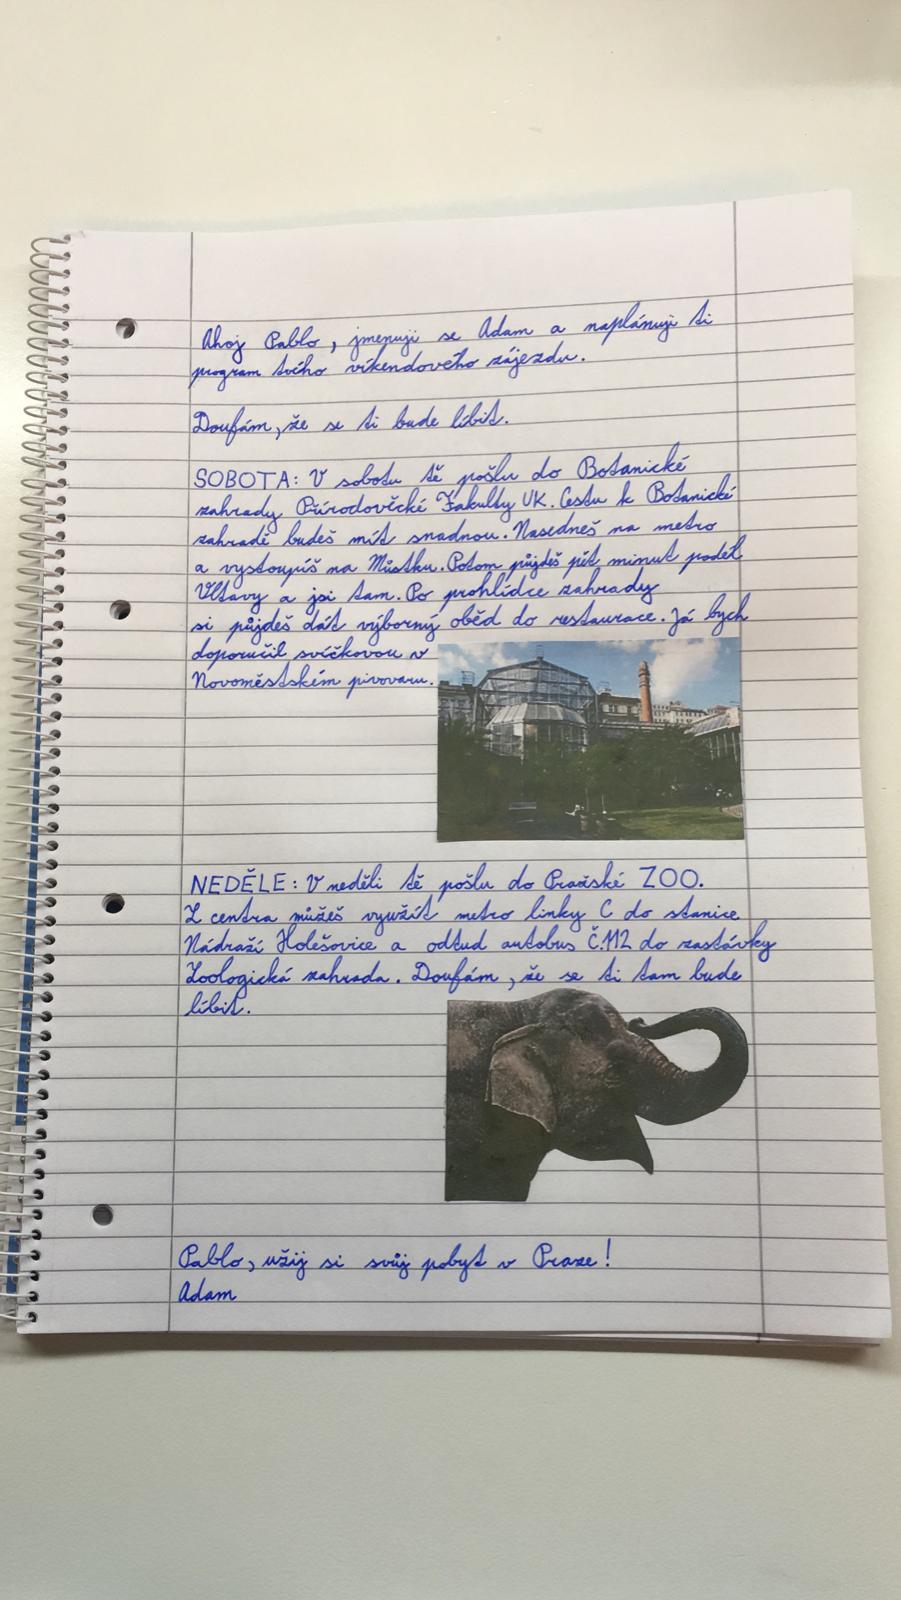 Ahoj Pablo, jmenuji se Adam a naplánuji ti
program tvého víkendového zájezdu.
Doufám, že se ti bude líbit.
SOBOTA: V sobotu tě pošlu do Botanické
zahrady Přírodovědcké Fakulty UK. Cestu k Botanické
zahradě budeš mít snadnou. Nasedneš na metro
a vystoupíš na Můstku. Potom půjdeš pět minut podél
Vltavy a jsi tam. Po prohlídce zahrady
si půjdeš dát výborný oběd do restaurace. Já bych
doporučil svíčkovou v
Novoměstském pivovaru.
NEDĚLE: V neděli tě pošlu do Pražské ZOO.
Z centra můžeš využít metro linky C do stanice
Nádraží Holešovice a odtud autobus Č.112 do zastávky
Zoologická zahrada. Doufám, že se ti tam bude
líbit.
Pablo, užij si svůj pobyt v Praze!
Adam